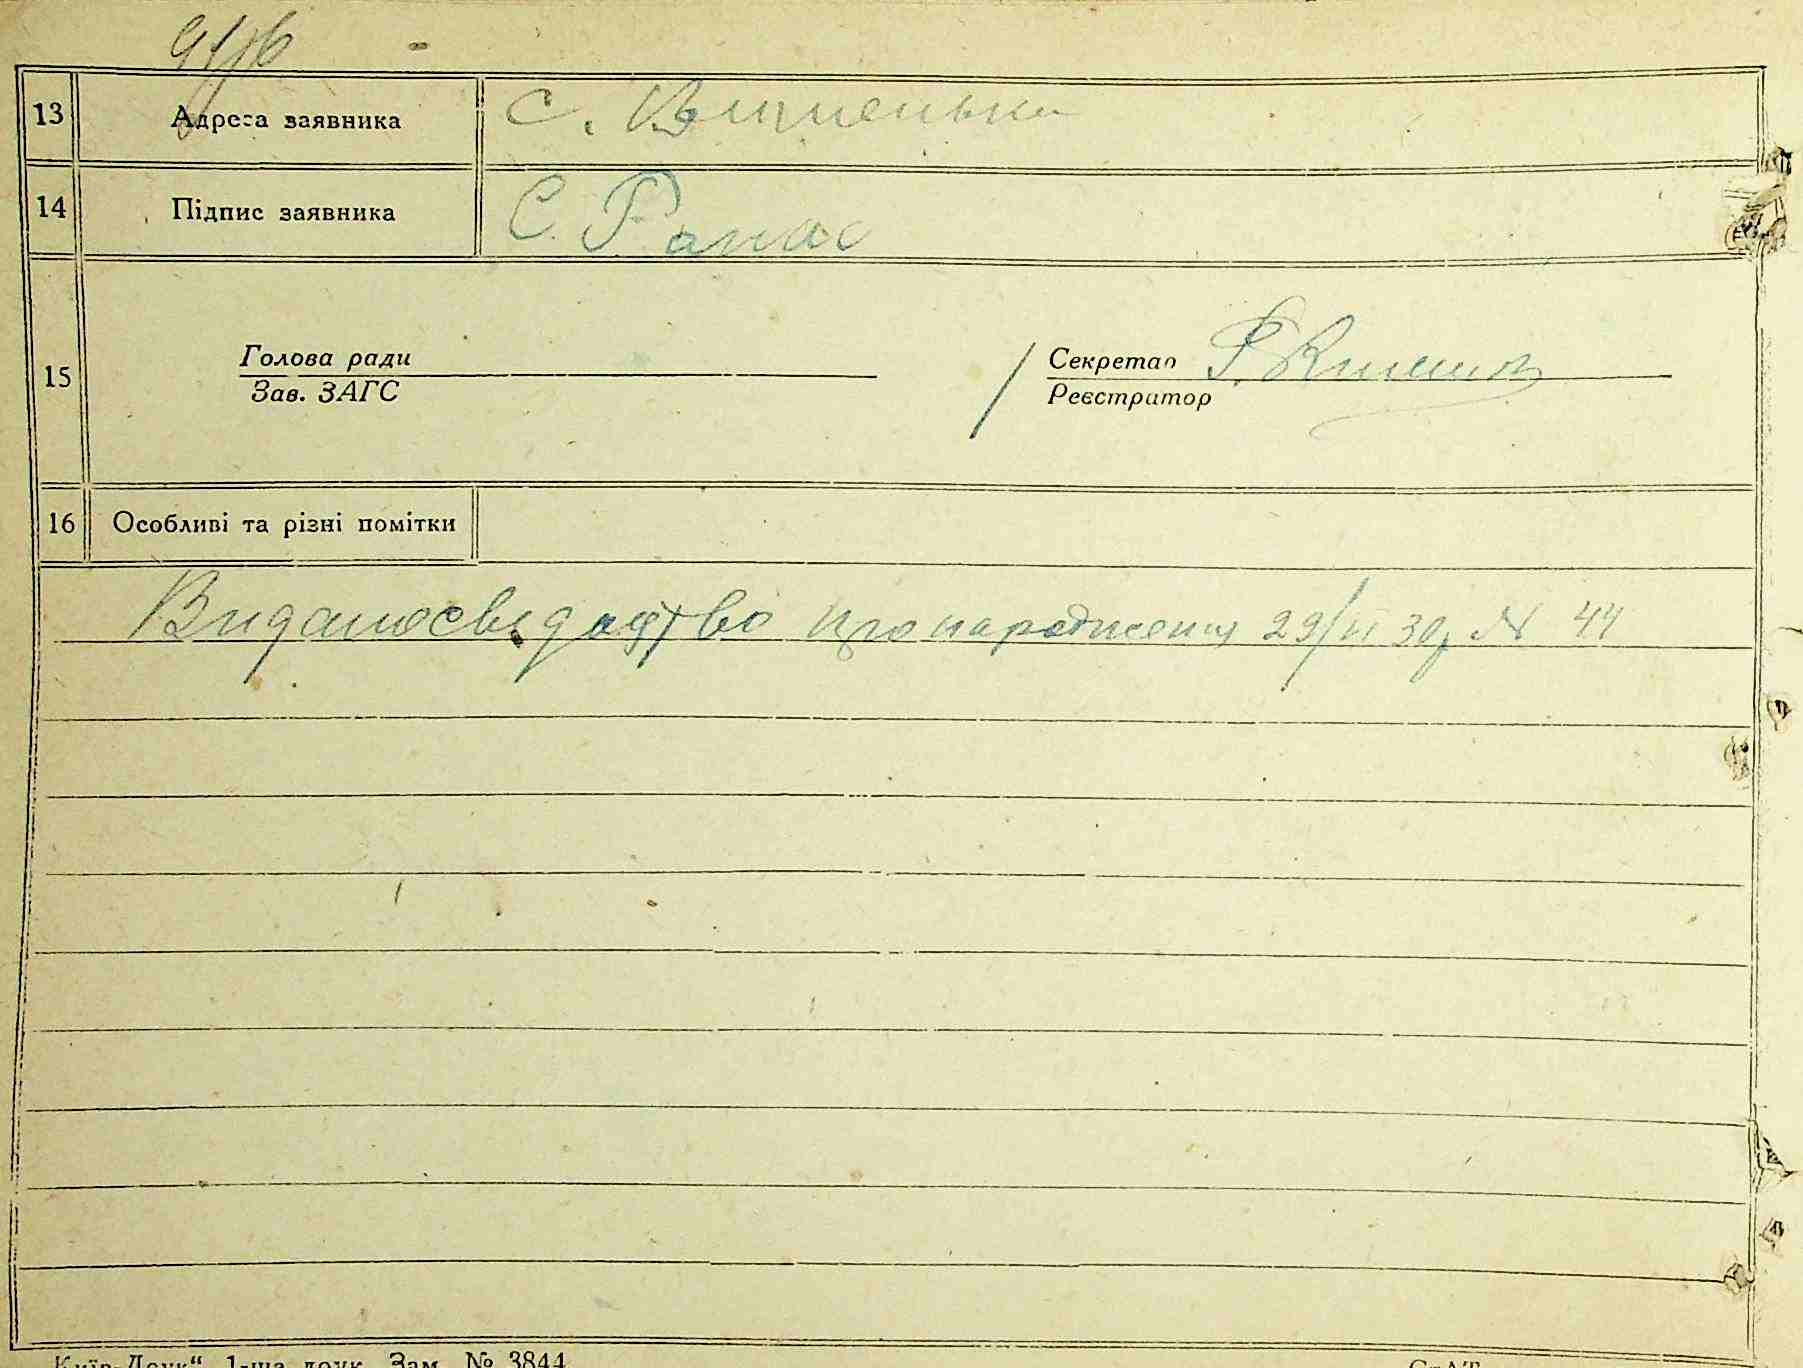 91
13 Адреса заявника с. Вишенька
14 Підпис заявника С. Ганас
15 Голова ради Секретар
Зав. ЗАГС Реєстратор
16 Особливі та різні помітки
Видано свідоцтво про народження 29/VI 30р № 44
Київ-Друк“, 1-ша друк. Зам. № 3844